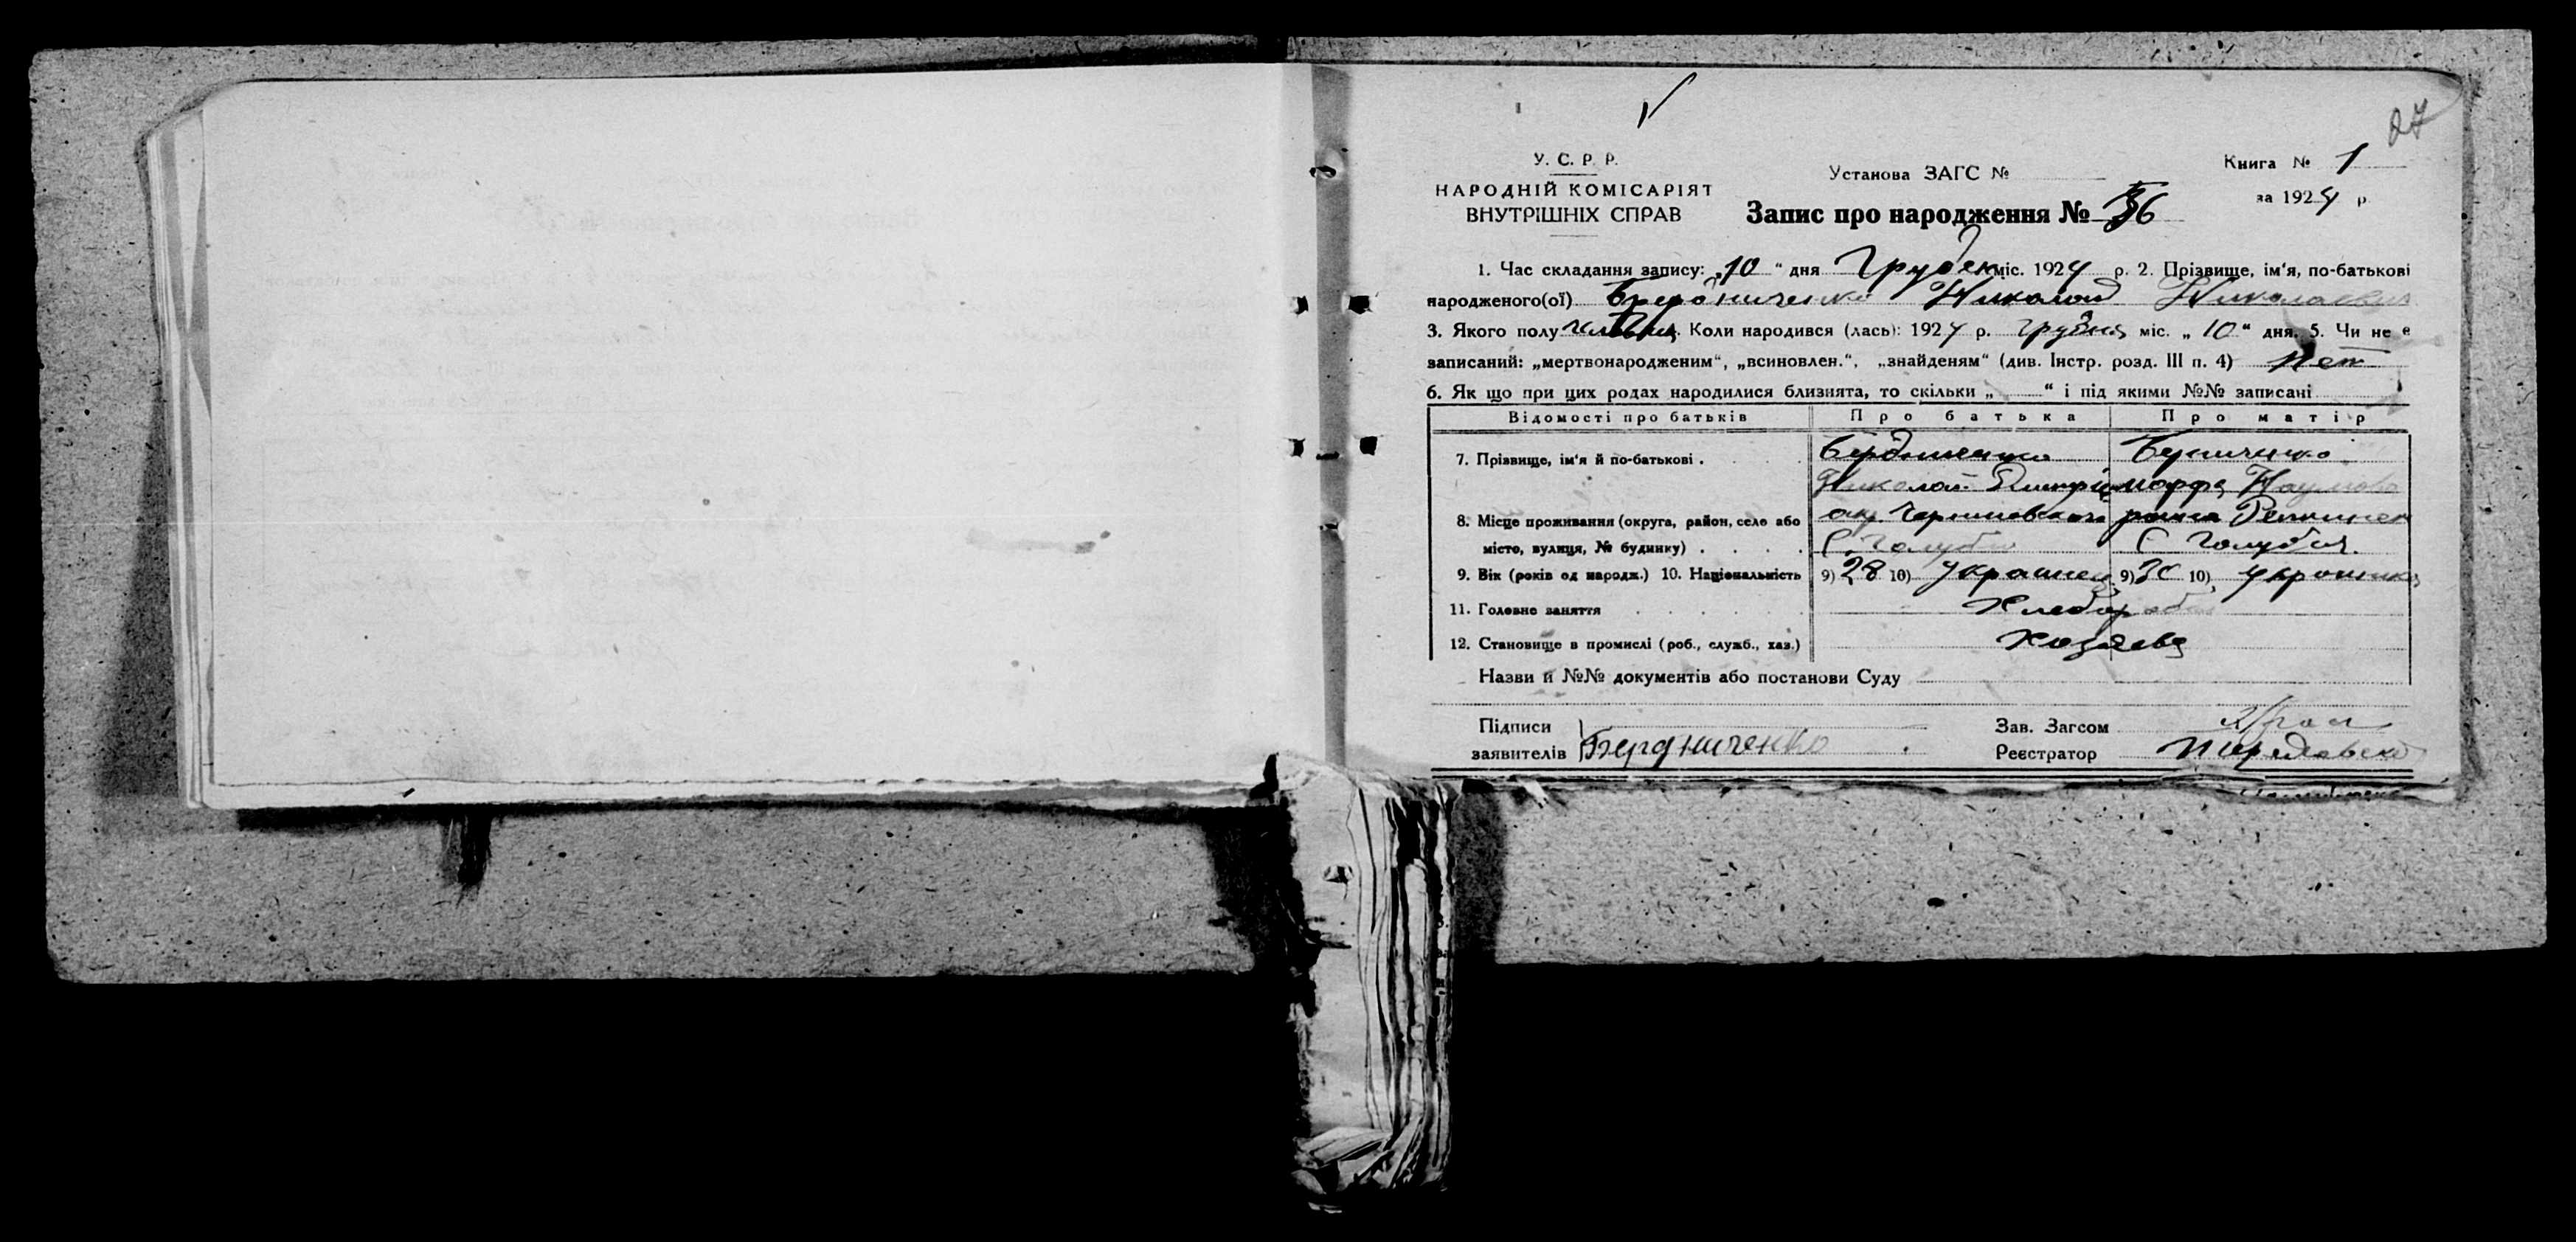 27
У. С. Р. Р.
НАРОДНІЙ КОМІСАРІЯТ
ВНУТРІШНІХ СПРАВ
Установа ЗАГС №
Книга № 1
за 1924 р.
Запис про народження № 36
1. Час складання запису: „10“ дня Грудня міс. 1924 р. 2. Прізвище, ім‘я, по-батькові
народженого(ої) Николай Николаевич
3. Якого полу Коли народився (лась): 1924 р. Грудня міс. „10“ дня. 5. Чи не є
записаний: „мертвонародженим“, „всиновлен.“, „знайденям“ (див. Інстр. розд. III п. 4) Нет
6. Як що при цих родах народилися близнята, то скільки „ “ і під якими №№ записані
Відомості про батьків Про батька Про матір
7. Прізвище, ім‘я й по-батькові . Бердниченко
Николай Марфа Наумова
8. Місце проживання (округа, район, село або окр. Черниговского района
місто, вулиця, № будинку) . . . . С. Голубичи С Голубичи
9. Вік (років од народж.) 10. Національність 9) 28 10) Украинец 9) 30 10) Украинка
11. Головне заняття Хлебороб
12. Становище в промислі (роб., служб., хаз.) Хозяева
Назви й №№ документів або постанови Суду
Підписи
заявителів Бердниченко
Зав. Загсом
Реєстратор